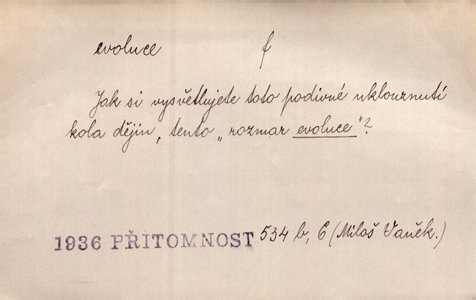 evoluce f
Jak si vysvětlujete toto podivné uklouznutí
kola dějin, tento „rozmar evoluce"?
1936 PŘITOMNOST 534 b, 6 (Miloš Vaněk.)